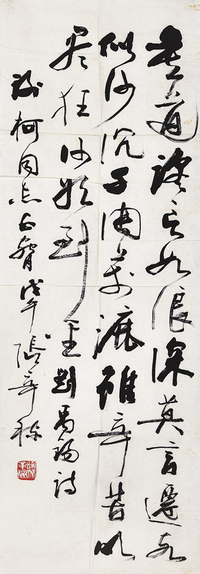 莫道讒言如浪深莫言遷客
似沙沉千淘萬漉雖辛苦吹
盡狂沙始到金劉禹錫詩
柯同志戊午張辛稼